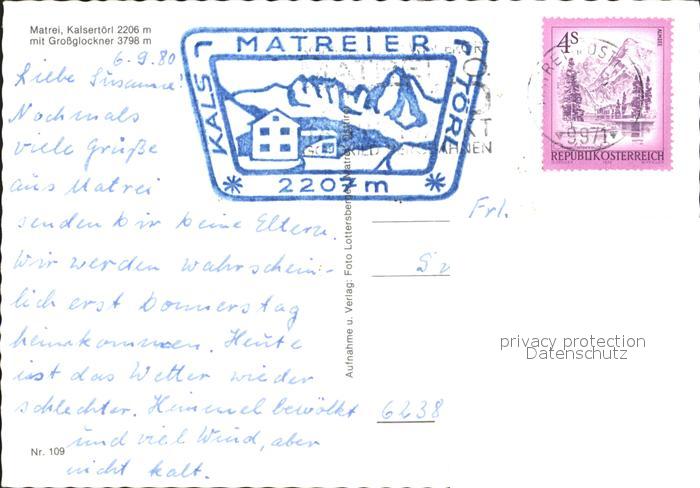 Matrei, Kalsertörl 2206 m
mit Großglockner 3798 m
6.9.80
Liebe Susanne
Nochmals
viele Grüße
aus Matrei
senden Dir Deine Eltern.
Wir werden wahrschein-
lich erst Donnerstag
heimkommen. Heute
ist das Wetter wieder
schlechter. Himmel bewölkt
und viel Wind, aber
nicht kalt.
Nr. 109
KALS MATREIER TÖRL
2207 m
Aufnahme u. Verlag: Foto Lottersberger, Matrei
4S
ALMSEE
REPUBLIK ÖSTERREICH
9971
Frl.
6238
privacy protection
Datenschutz